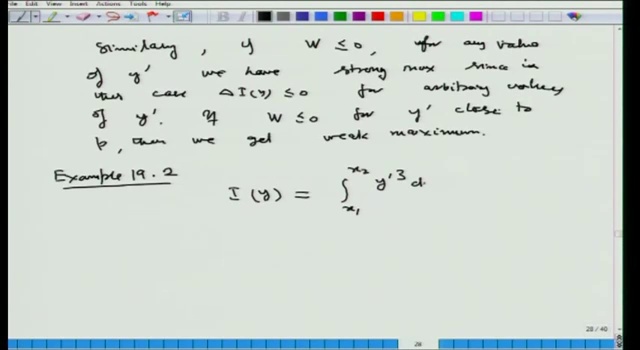 View Insert Actions Tools Help
Similarly, if W ≤ 0, for any value
of y' we have strong max since in
this case ΔI(y) ≤ 0 for arbitrary values
of y'. If W ≤ 0 for y' close to
p, then we get weak maximum.
Example 19.2
I(y) = ∫_{x₁}^{x₂} y'³ d
28 / 40
28